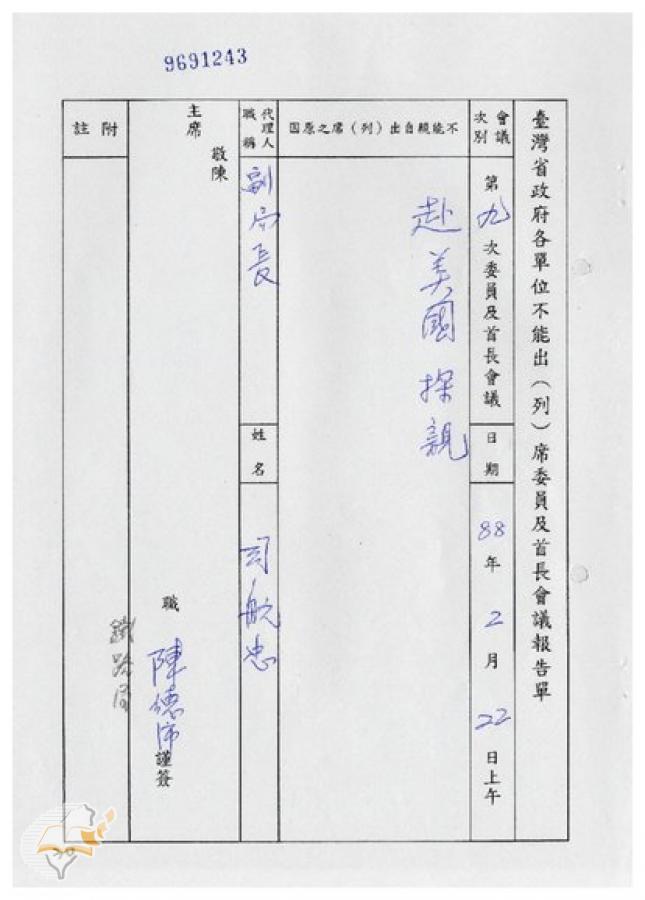 9691243
臺灣省政府各單位不能出(列)席委員及首長會議報告單
會議次別
第九次委員及首長會議
日期
88年2月22日上午
不能親自出(列)席之原因
赴美國探親
代理人職稱
副局長
姓名
司航忠
敬陳
主席
職
陳德沛
謹簽
附註
鐵路局
30